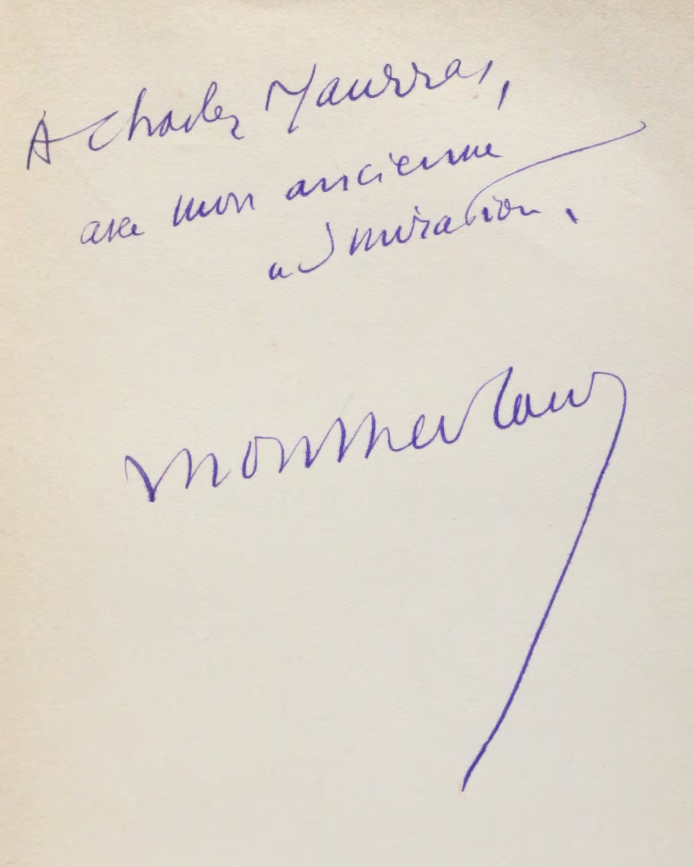 A Charles Maurras,
avec mon ancienne
admiration.
Montherlant